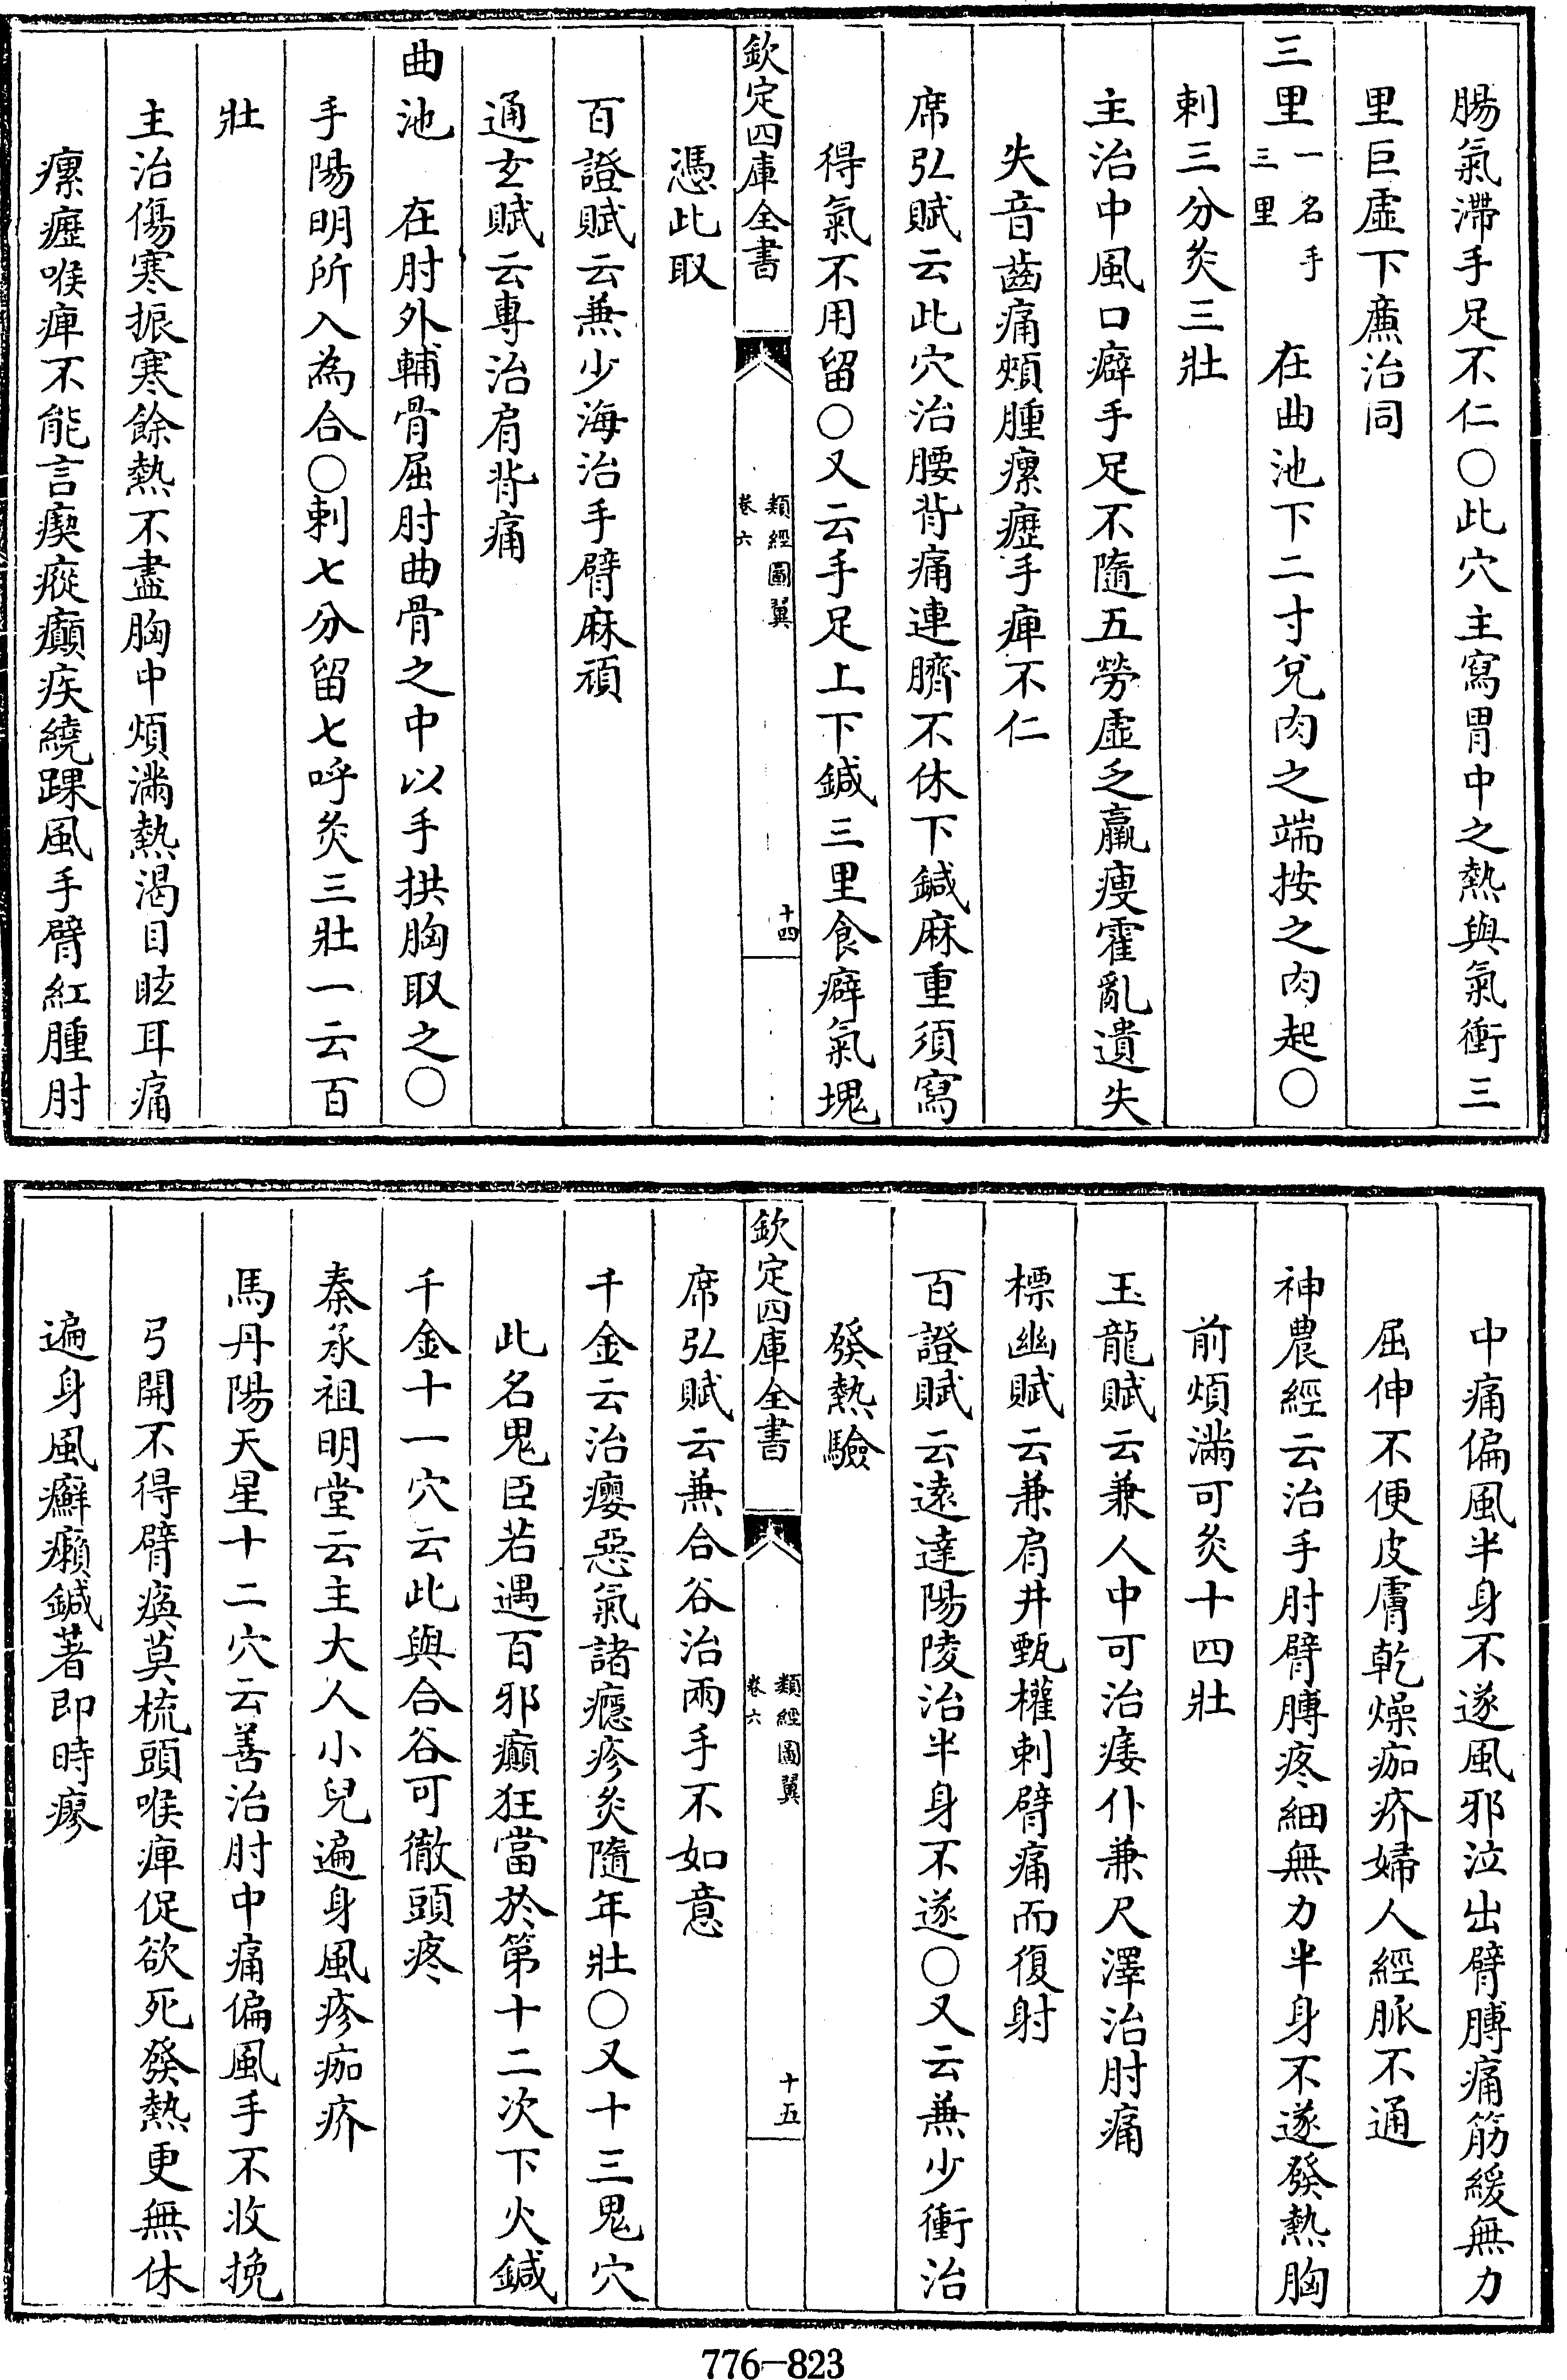 腸氣滯手足不仁○此穴主寫胃中之熱與氣衝三
里巨虛下廉治同
三里一名手三里 在曲池下二寸兌肉之端按之肉起○
刺三分灸三壯
主治中風口癖手足不隨五勞虛乏羸瘦霍亂遺失
失音齒痛頰腫瘰癧手痺不仁
席弘賦云此穴治腰背痛連臍不休下鍼麻重須寫
得氣不用留○又云手足上下鍼三里食癖氣塊
憑此取
欽定四庫全書 類經圖翼 卷六 十四
百證賦云兼少海治手臂麻頑
通玄賦云專治肩背痛
曲池 在肘外輔骨屈肘曲骨之中以手拱胸取之○
手陽明所入為合○刺七分留七呼灸三壯一云百
壯
主治傷寒振寒餘熱不盡胸中煩滿熱渴目眩耳痛
瘰癧喉痺不能言瘈瘲癲疾繞踝風手臂紅腫肘
中痛偏風半身不遂風邪泣出臂膊痛筋緩無力
屈伸不便皮膚乾燥痂疥婦人經脈不通
神農經云治手肘臂膊疼細無力半身不遂發熱胸
前煩滿可灸十四壯
玉龍賦云兼人中可治痿仆兼尺澤治肘痛
標幽賦云兼肩井甄權刺臂痛而復射
百證賦云遠達陽陵治半身不遂○又云兼少衝治
發熱驗
欽定四庫全書 類經圖翼 卷六 十五
席弘賦云兼合谷治兩手不如意
千金云治癭惡氣諸癮疹灸隨年壯○又十三鬼穴
此名鬼臣若遇百邪癲狂當於第十二次下火鍼
千金十一穴云此與合谷可徹頭疼
秦承祖明堂云主大人小兒遍身風疹痂疥
馬丹陽天星十二穴云善治肘中痛偏風手不收挽
弓開不得臂瘓莫梳頭喉痺促欲死發熱更無休
遍身風癬癩鍼著即時瘳
776-823